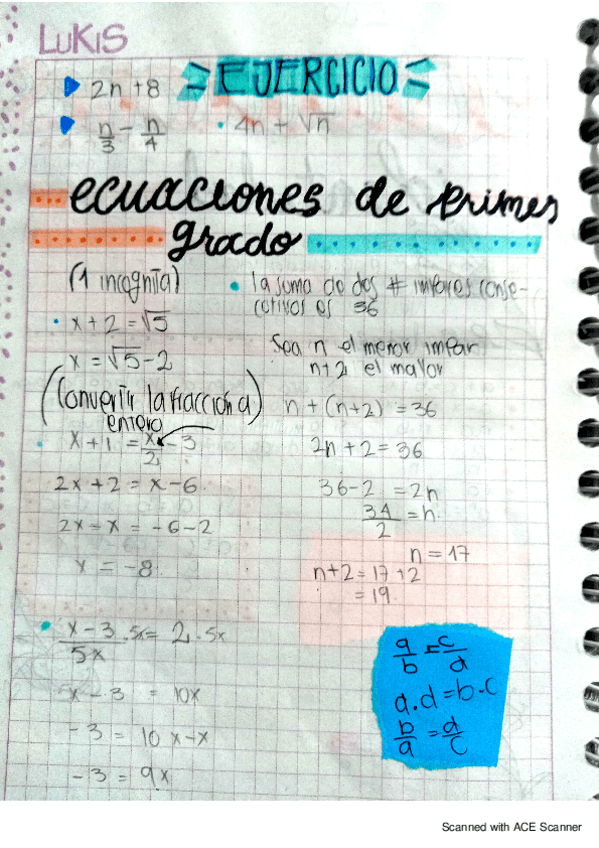 LUKIS
EJERCICIO
2n + 8
n/3 - n/4
• 4n + √n
ecuaciones de primer
grado
(1 incognita)
• x + 2 = √5
x = √5 - 2
(Convertir la fracción a)
entero
• x + 1 = x/2 - 3
2x + 2 = x - 6
2x - x = -6 - 2
x = -8
• x - 3/5x · 5x = 2 · 5x
x - 3 = 10x
-3 = 10x - x
-3 = 9x
• la suma de dos # impares conse-
cutivos es 36
Sea n el menor impar
n+2 el mayor
n + (n+2) = 36
2n + 2 = 36
36 - 2 = 2n
34/2 = n
n = 17
n+2 = 17 + 2
= 19
a/b = c/d
a.d = b.c
b/a = d/c
Scanned with ACE Scanner